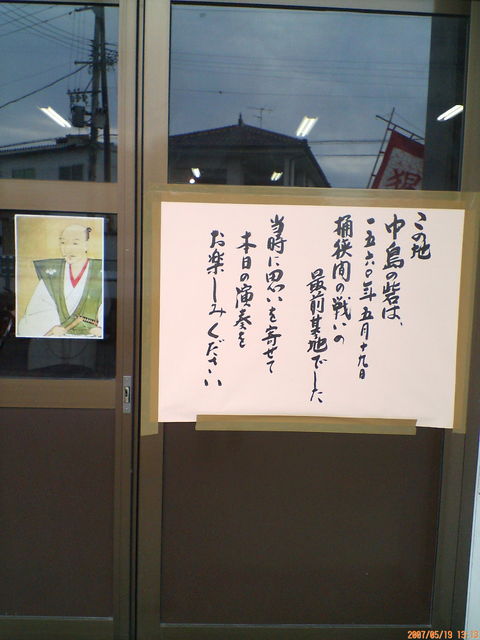 この地
中島の砦は、
一五六〇年五月十九日
桶狭間の戦いの
最前基地でした
当時に思いを寄せて
本日の演奏を
お楽しみください
2007/05/19